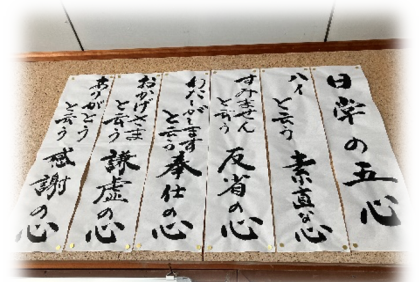 日常の五心
ハイと言う 素直な心
すみませんと言う 反省の心
わたしがしますと言う 奉仕の心
おかげさまと言う 謙虚の心
ありがとうと言う 感謝の心